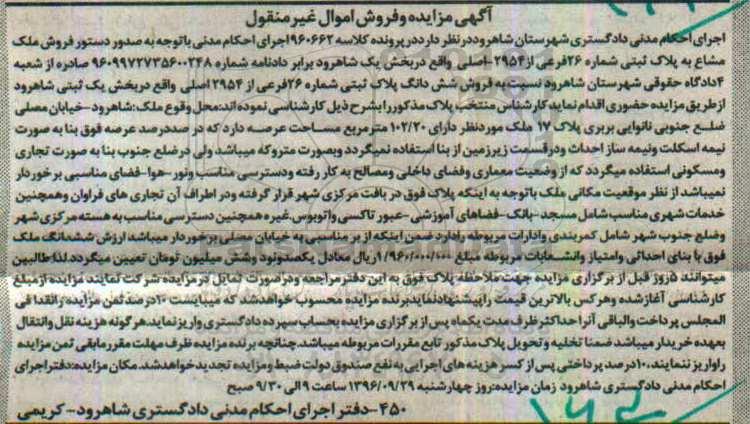 آگهی مزایده و فروش اموال غیر منقول
اجرای احکام مدنی دادگستری شهرستان شاهرود در نظر دارد در پرونده کلاسه ۹۶۰۶۶۲ اجرای احکام مدنی با توجه به صدور دستور فروش ملک
مشاع به پلاک ثبتی شماره ۲۶ فرعی از ۲۹۵۴- اصلی واقع در بخش یک شاهرود برابر دادنامه شماره ۹۶۰۹۹۷۲۷۳۵۶۰۰۲۴۸ صادره از شعبه
۴ دادگاه حقوقی شهرستان شاهرود نسبت به فروش شش دانگ پلاک ثبتی شماره ۲۶ فرعی از ۲۹۵۴ اصلی واقع در بخش یک ثبتی شاهرود
از طریق مزایده حضوری اقدام نماید کارشناس منتخب پلاک مذکور را بشرح ذیل کارشناسی نموده اند: محل وقوع ملک: شاهرود - خیابان مصلی
ضلع جنوبی نانوایی بربری پلاک ۱۷ ملک مورد نظر دارای ۱۰۲/۲۰ متر مربع مساحت عرصه دارد که در صد در صد عرصه فوق بنا به صورت
نیمه اسکلت و نیمه ساز احداث و در قسمت زیر زمین از بنا استفاده نمیگردد و بصورت متروکه میباشد ولی در ضلع جنوب بنا به صورت تجاری
و مسکونی استفاده میگردد که از وضعیت معماری و فضای داخلی و مصالح به کار رفته و دسترسی مناسب و نور - هوا - فضای مناسبی برخوردار
نمیباشد از نظر موقعیت مکانی ملک با توجه به اینکه پلاک فوق در بافت مرکزی شهر قرار گرفته و در اطراف آن تجاری های فراوان و همچنین
خدمات شهری مناسب شامل مسجد - بانک - فضاهای آموزشی - عبور تاکسی و اتوبوس. غیره همچنین دسترسی مناسب به هسته مرکزی شهر
و ضلع جنوب شهر شامل کمربندی و ادارات مربوطه را دارد ضمن اینکه از بر مناسبی به خیابان مصلی برخوردار میباشد ارزش ششدانگ ملک
فوق با بنای احداثی و امتیاز و انشعابات مربوطه مبلغ ۱/۹۶۰/۰۰۰/۰۰۰ ریال معادل یکصد و نود و شش میلیون تومان تعیین میگردد لذا طالبین
میتوانند ۵ روز قبل از برگزاری مزایده جهت ملاحظه پلاک فوق به این دفتر مراجعه و در صورت تمایل در مزایده شرکت نمایند مزایده از مبلغ
کارشناسی آغاز شده و هر کس بالاترین قیمت را پیشنهاد نماید برنده مزایده محسوب خواهد شد که میبایست ۱۰ درصد ثمن مزایده را نقدا فی
المجلس پرداخت و الباقی آنرا حداکثر ظرف مدت یکماه پس از برگزاری مزایده بحساب سپرده دادگستری واریز نماید. هر گونه هزینه نقل و انتقال
بعهده خریدار میباشد ضمنا تخلیه و تحویل پلاک مذکور تابع مقررات مربوطه میباشد. چنانچه برنده مزایده ظرف مهلت مقرر مابقی ثمن مزایده
را واریز ننمایند، ۱۰ درصد پرداختی پس از کسر هزینه های اجرایی به نفع صندوق دولت ضبط و مزایده تجدید خواهد شد. مکان مزایده: دفتر اجرای
احکام مدنی دادگستری شاهرود زمان مزایده: روز چهارشنبه ۱۳۹۶/۰۹/۲۹ ساعت ۹ الی ۹/۳۰ صبح
۴۵۰- دفتر اجرای احکام مدنی دادگستری شاهرود - کریمی